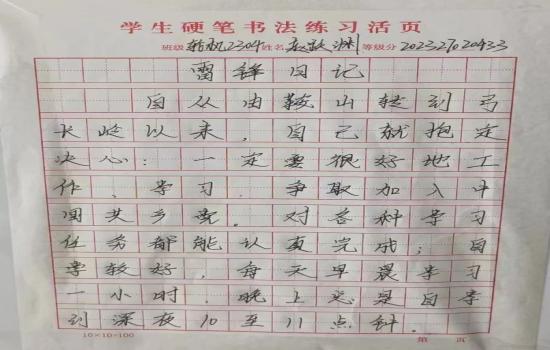 学生硬笔书法练习活页
班级 轮机2304 姓名 等级分 202327020433
雷锋日记
自从由鞍山转到弓
长岭以来,自己就抱定
决心:一定要很好地工
作、学习,争取加入中
国共产党。对各种学习
任务都能认真完成;自
学较好,每天早晨学习
一小时,晚上总是自学
到深夜10至11点钟.
10×10=100 第 页